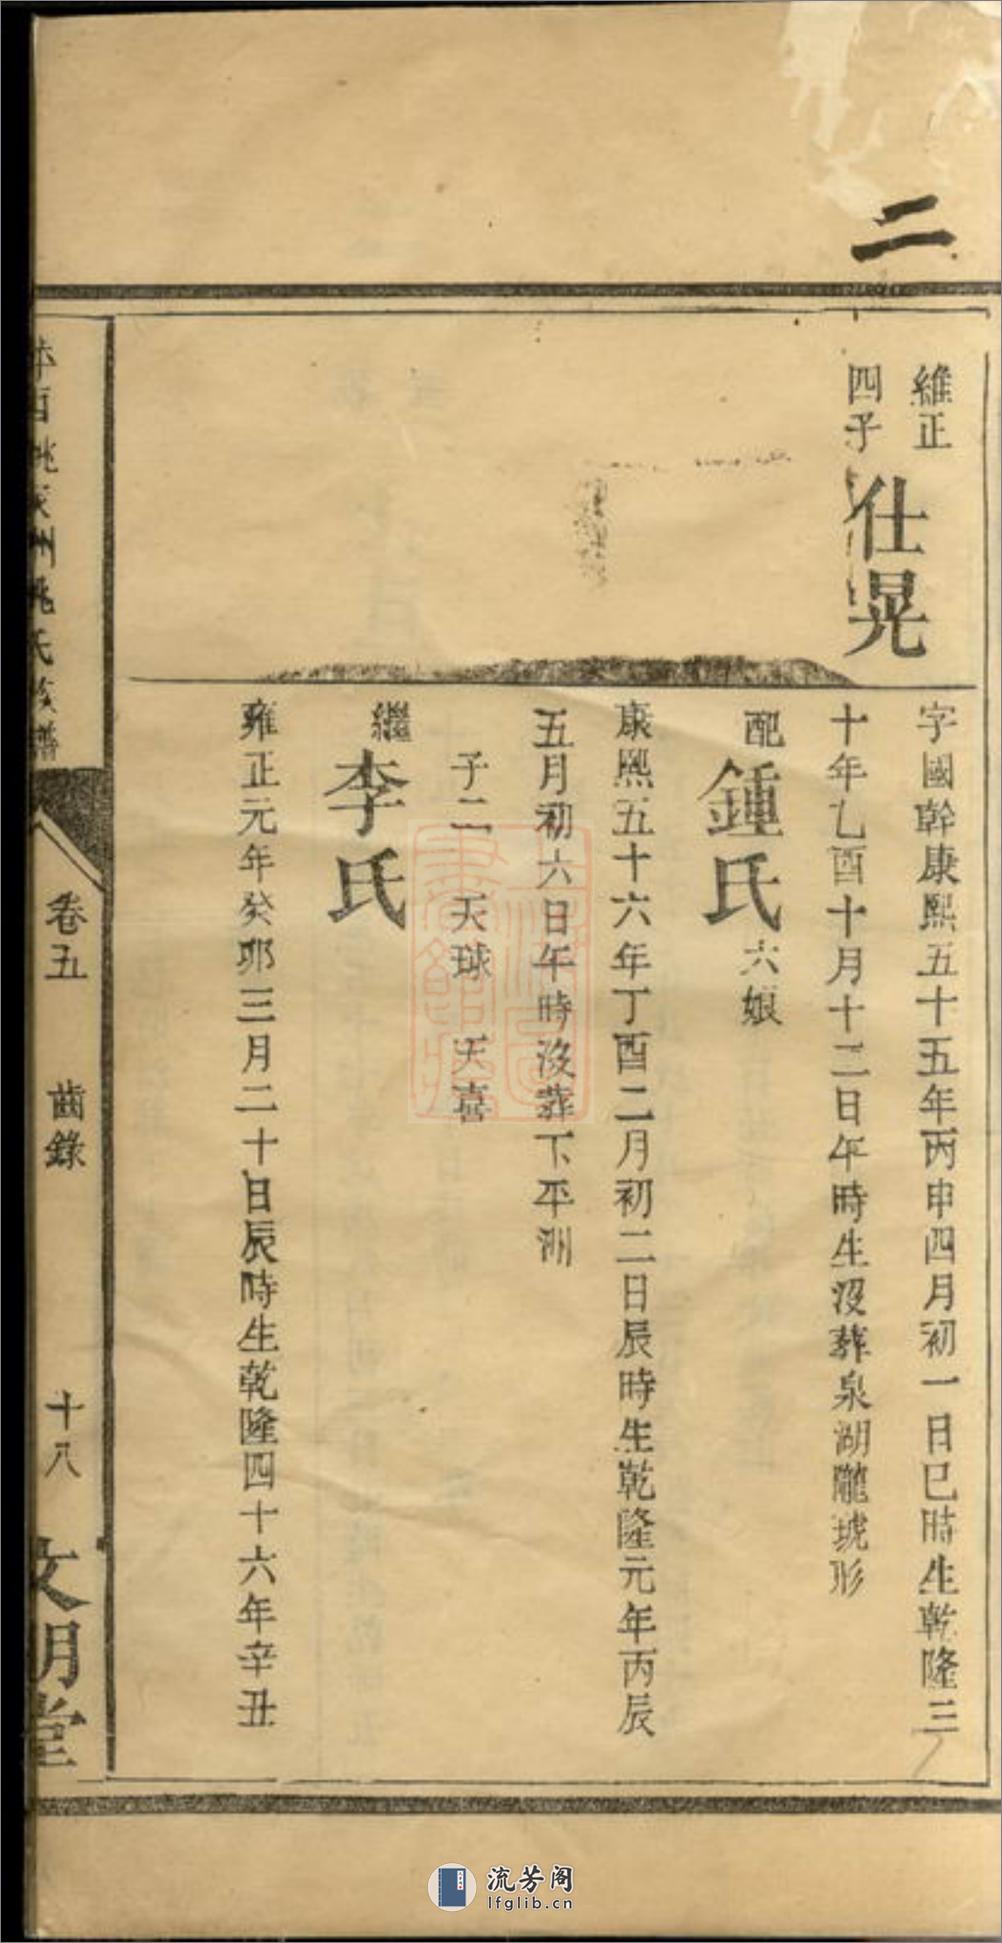 二
維正
四子
仕晃
字國幹康熙五十五年丙申四月初一日巳時生乾隆三
十年乙酉十月十二日午時生沒葬泉湖隴琥形
配鍾氏六娘
康熙五十六年丁酉二月初二日辰時生乾隆元年丙辰
五月初六日午時沒葬下平洲
子二 天球 天喜
繼李氏
雍正元年癸卯三月二十日辰時生乾隆四十六年辛丑
姚家洲姚氏族譜
卷五 齒錄 十八
文明堂
流芳阁
lfglib.cn